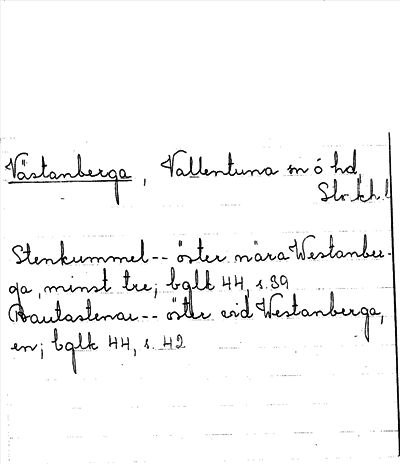 Västanberga, Vallentuna sn o hd,
Stockh. l
Stenkummel -- öster nära Westanber-
ga, minst tre; bglk 44, s. 39
Bautastenar -- öster vid Westanberga,
en; bglk 44, s. 42